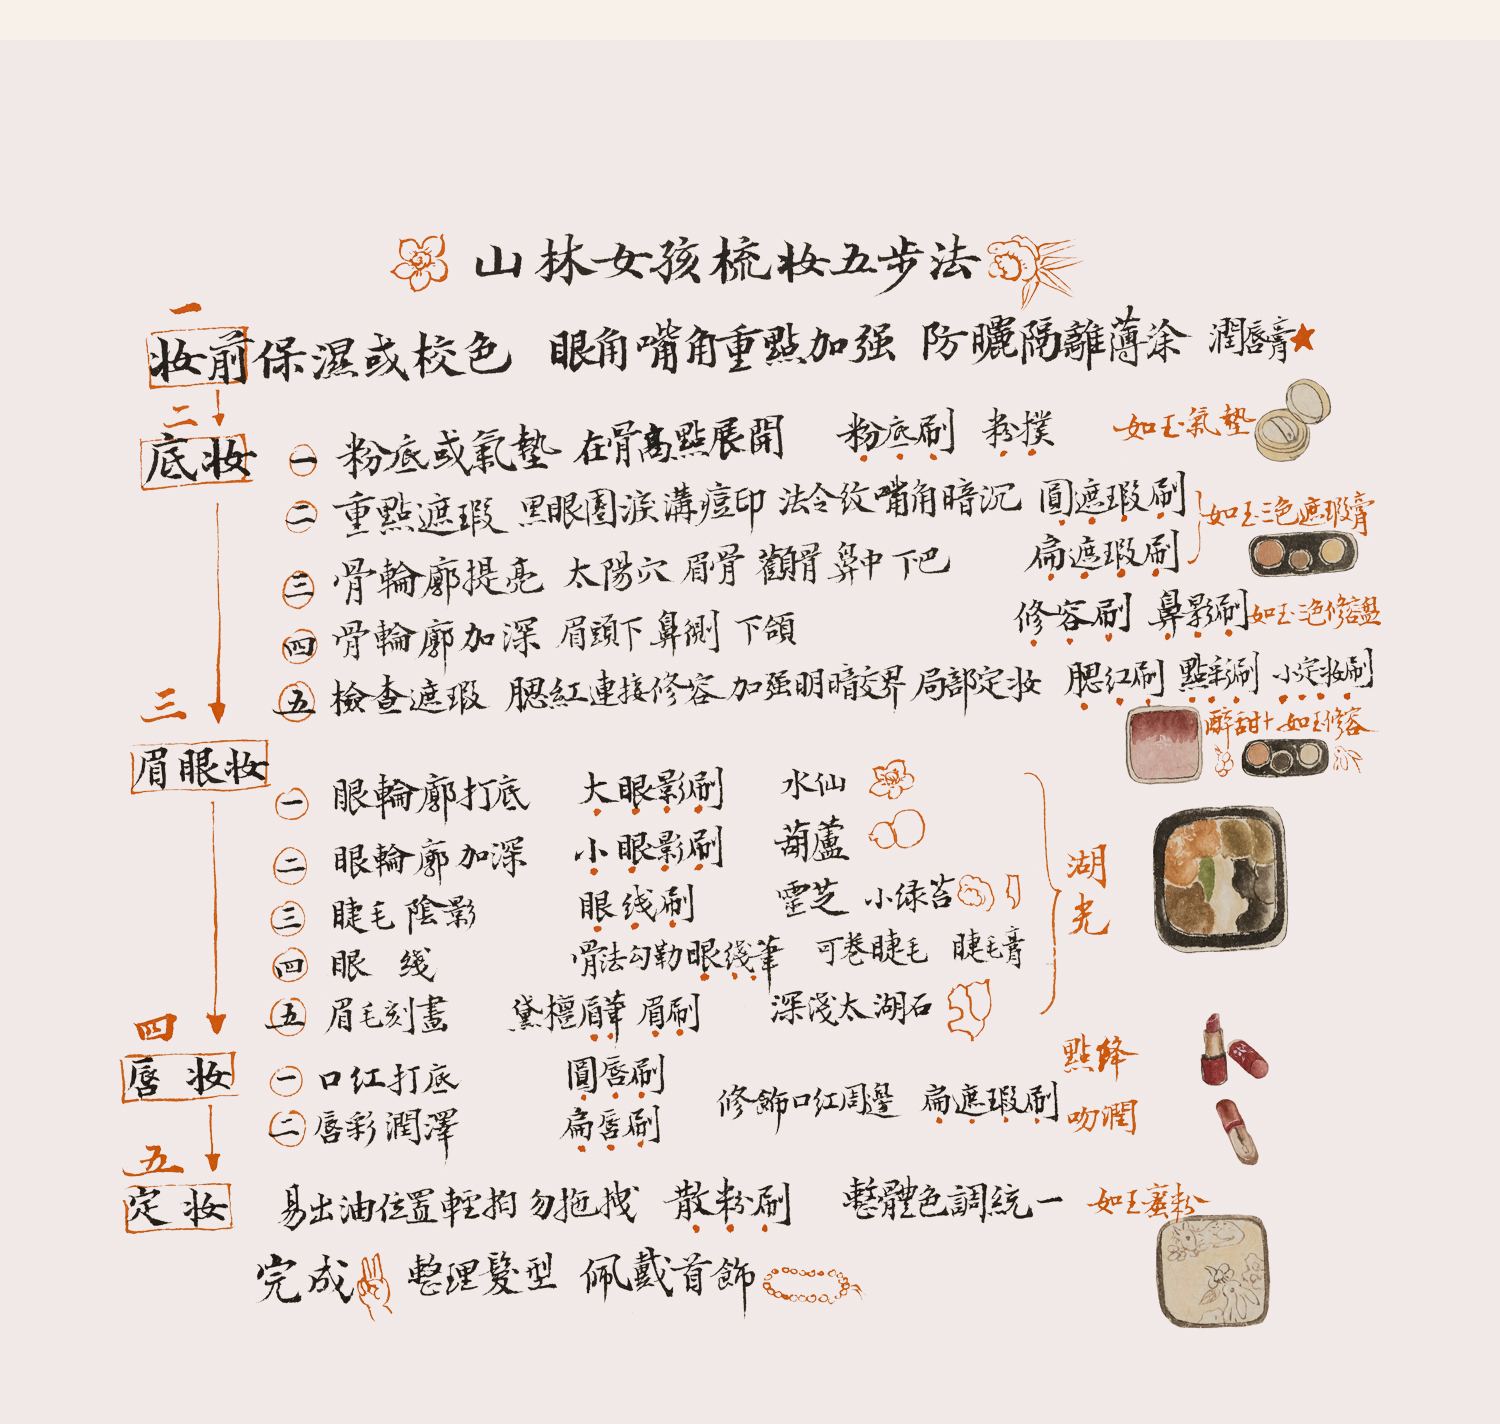 山林女孩梳妆五步法
一
妆前 保濕或校色 眼角嘴角重點加强 防曬隔離薄涂 潤唇膏
二
底妆 一 粉底或氣墊 在骨高點展開 粉底刷 粉撲 如玉氣墊
二 重點遮瑕 黑眼圈淚溝痘印 法令纹嘴角暗沉 圓遮瑕刷 如玉三色遮瑕膏
三 骨輪廓提亮 太陽穴 眉骨 顴骨 鼻中 下巴 扁遮瑕刷
四 骨輪廓加深 眉頭下 鼻側 下頜 修容刷 鼻影刷 如玉三色修容盤
五 檢查遮瑕 腮紅連接修容 加强明暗交界 局部定妆 腮红刷 點彩刷 小定妆刷
醉甜+如玉修容
三
眉眼妆
一 眼輪廓打底 大眼影刷 水仙
二 眼輪廓加深 小眼影刷 葫蘆
三 睫毛陰影 眼线刷 靈芝 小绿苔
湖光
四 眼线 骨法勾勒眼线筆 可卷睫毛 睫毛膏
五 眉毛刻畫 黛檀眉筆 眉刷 深淺太湖石
四
唇妆 一 口红打底 圓唇刷 點絳
二 唇彩潤澤 扁唇刷 修飾口红周邊 扁遮瑕刷 吻潤
五
定妆 易出油位置輕拍勿拖拽 散粉刷 整體色調統一 如玉蜜粉
完成 整理髮型 佩戴首飾